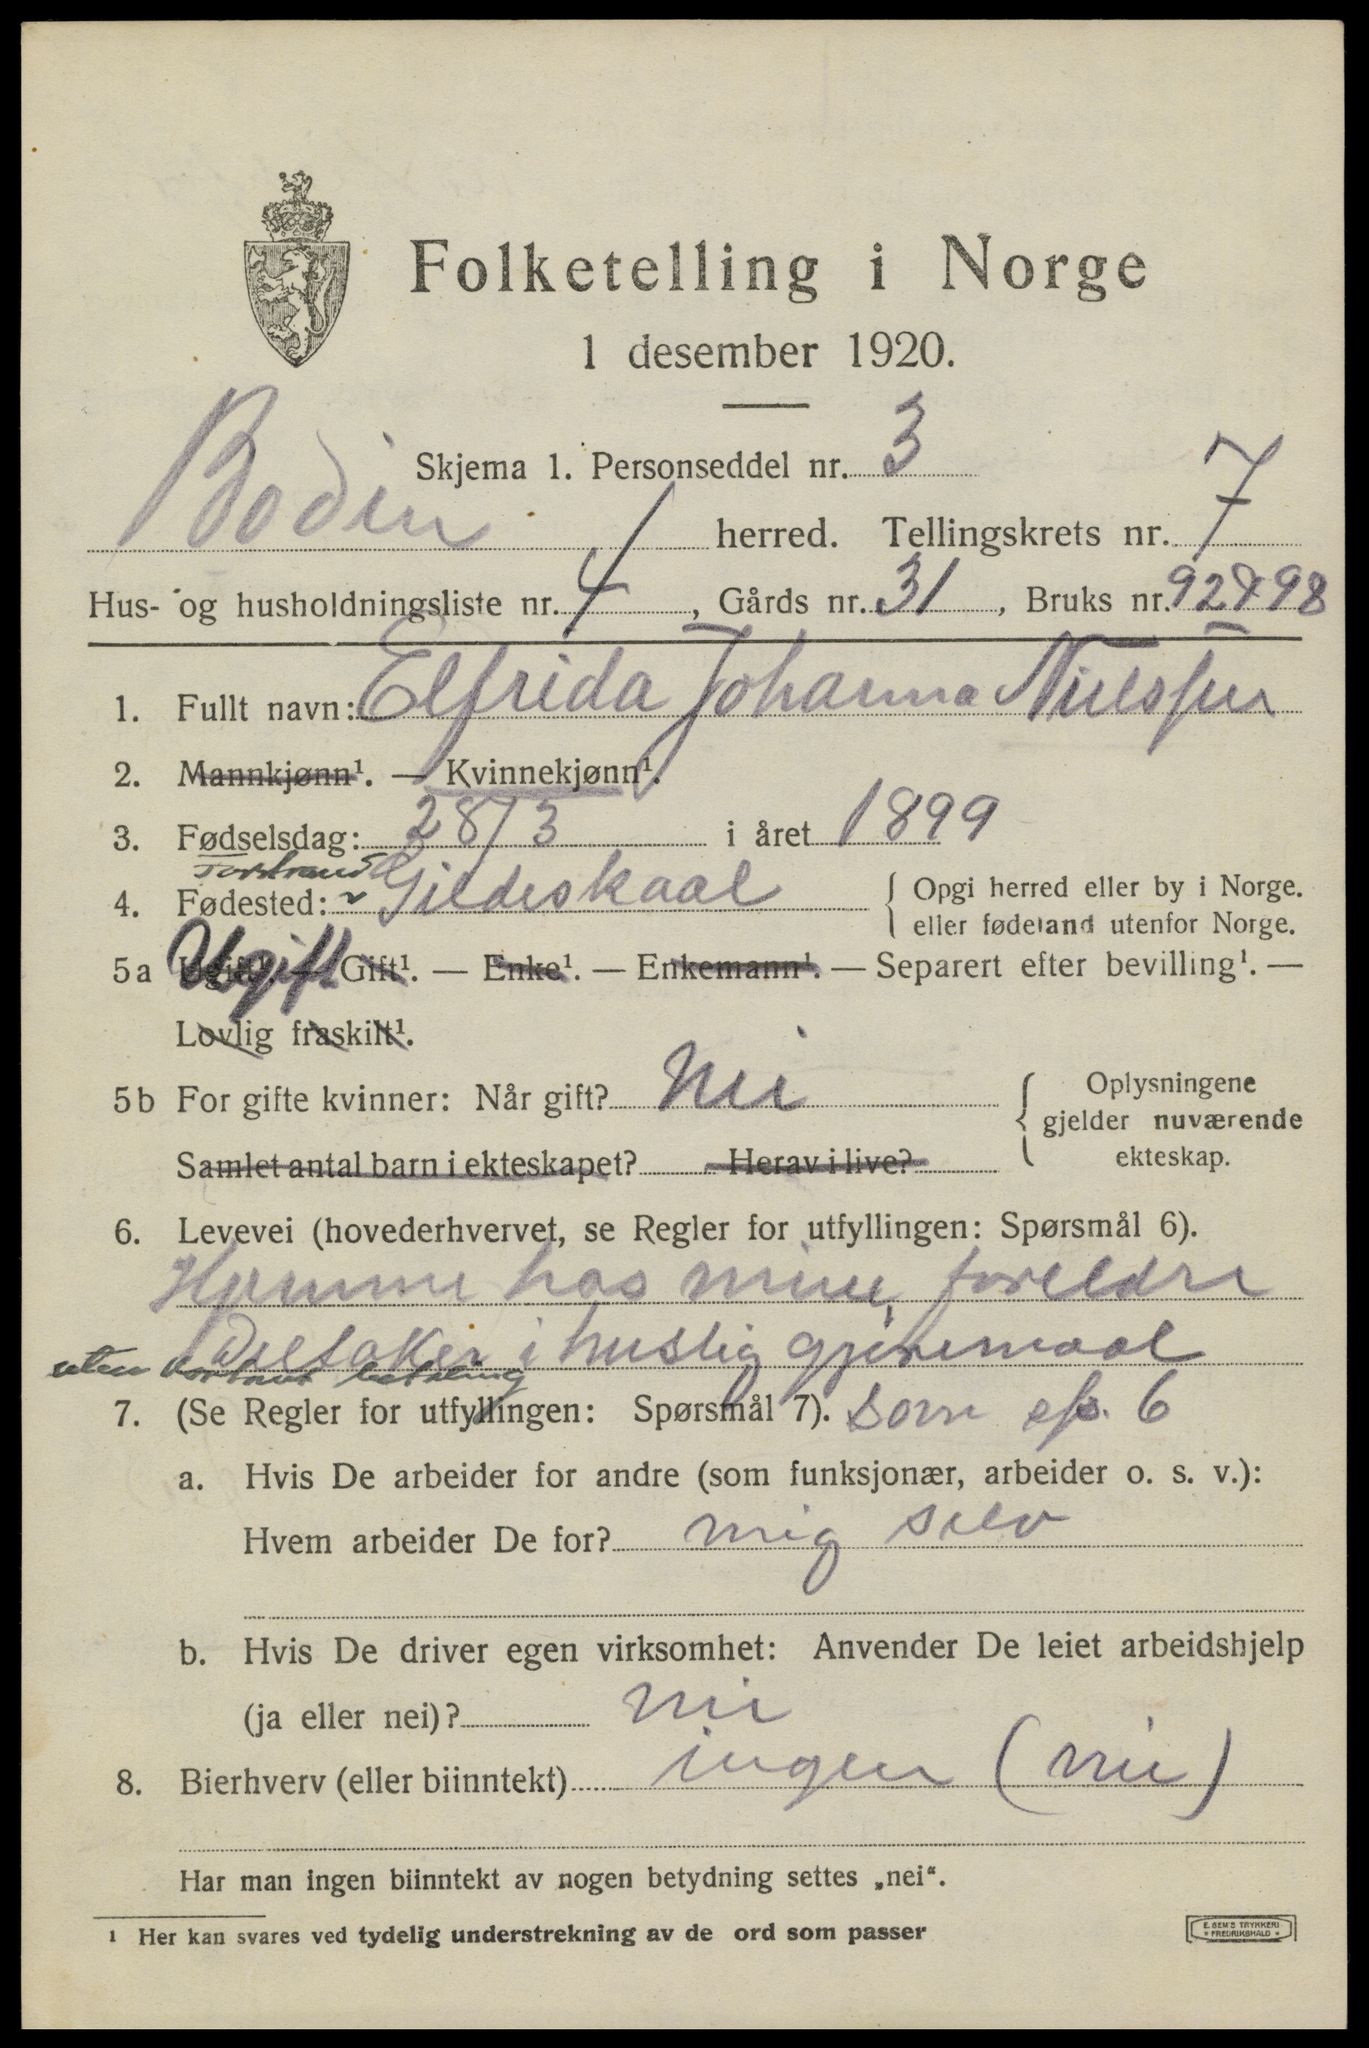 Folketelling i Norge
1 desember 1920.
Skjema 1. Personseddel nr. 3
Bodin herred. Tellingskrets nr. 7
Hus- og husholdningsliste nr. 4, Gårds nr. 31, Bruks nr. 92&98
1. Fullt navn: Elfrida Johanna Nielssen
2. Mannkjønn¹. — Kvinnekjønn¹.
3. Fødselsdag: 28/3 i året 1899
4. Fødested: Gildeskaal { Opgi herred eller by i Norge.
eller fødeland utenfor Norge.
5a Ugift Gift¹. — Enke¹. — Enkemann¹. — Separert efter bevilling¹. —
Lovlig fraskilt¹.
5b For gifte kvinner: Når gift? Nei { Oplysningene
gjelder nuværende
ekteskap.
Samlet antal barn i ekteskapet? Herav i live?
6. Levevei (hovederhvervet, se Regler for utfyllingen: Spørsmål 6).
Hjemme hos mine foreldre
Deltaker i huslig gjøremaal
uten kontrakt betaling
7. (Se Regler for utfyllingen: Spørsmål 7). som sp. 6
a. Hvis De arbeider for andre (som funksjonær, arbeider o. s. v.):
Hvem arbeider De for? mig selv
b. Hvis De driver egen virksomhet: Anvender De leiet arbeidshjelp
(ja eller nei)? nei
8. Bierhverv (eller biinntekt) ingen (nei)
Har man ingen biinntekt av nogen betydning settes „nei“.
¹ Her kan svares ved tydelig understrekning av de ord som passer
E. SEM'S TRYKKERI
* FREDRIKSHALD *